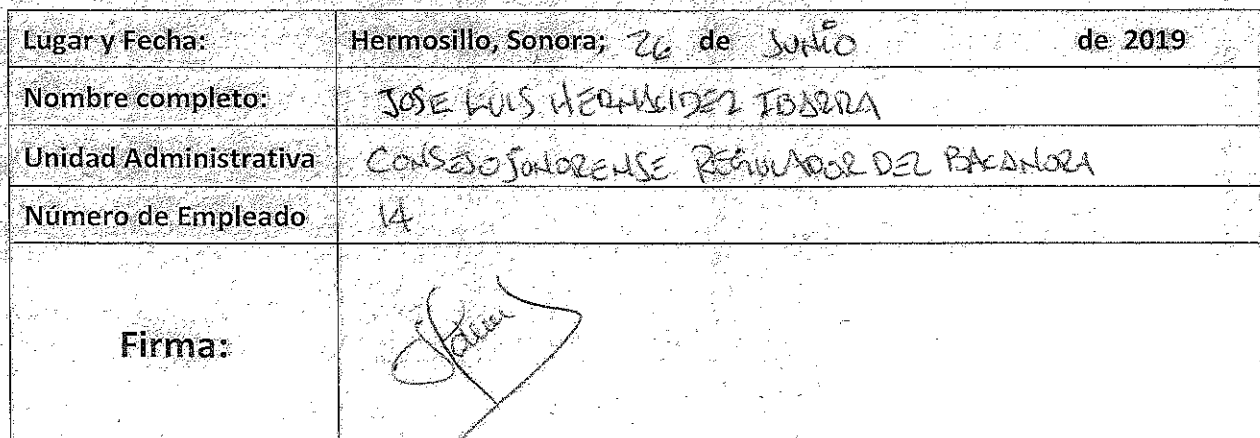 Lugar y Fecha: Hermosillo, Sonora; 26 de Junio de 2019
Nombre completo: JOSE LUIS HERNANDEZ IBARRA
Unidad Administrativa CONSEJO SONORENSE REGULADOR DEL BACANORA
Número de Empleado 14
Firma: